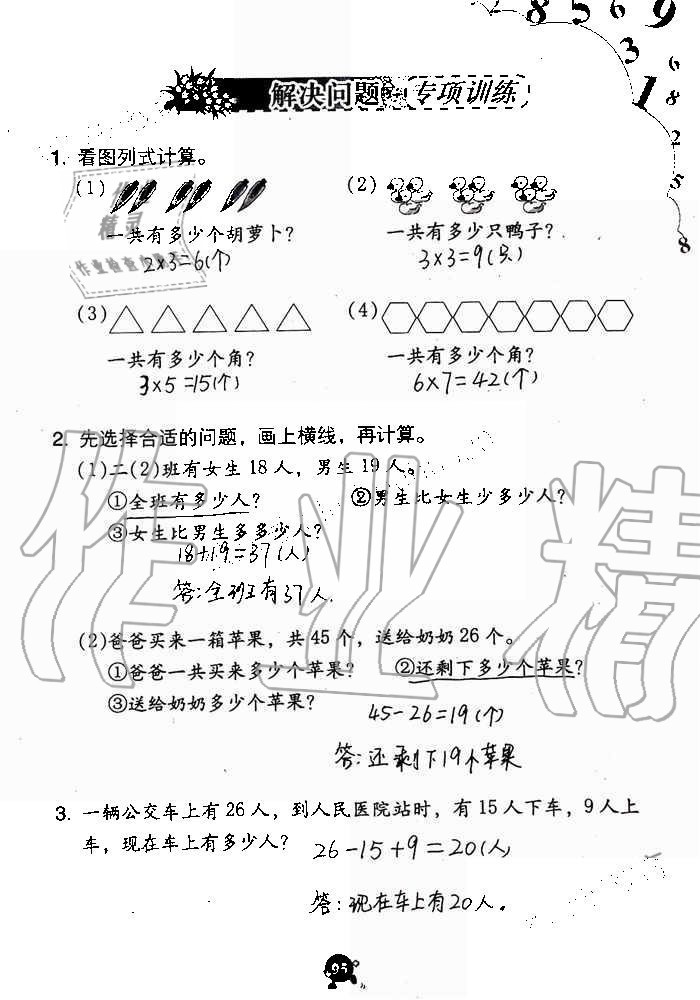 2 8 5 6 9
3
1
6
8
2
5
8
解决问题 专项训练
1. 看图列式计算。
(1)
(2)
一共有多少个胡萝卜?
一共有多少只鸭子?
2×3=6(个)
3×3=9(只)
精灵
作业检查
(3)
(4)
一共有多少个角?
一共有多少个角?
3×5=15(个)
6×7=42(个)
2. 先选择合适的问题，画上横线，再计算。
(1)二(2)班有女生18人，男生19人。
①全班有多少人? ②男生比女生少多少人?
③女生比男生多多少人?
18+19=37(人)
答:全班有37人.
(2)爸爸买来一箱苹果，共45个，送给奶奶26个。
①爸爸一共买来多少个苹果? ②还剩下多少个苹果?
③送给奶奶多少个苹果?
45-26=19(个)
答:还剩下19个苹果
3. 一辆公交车上有26人，到人民医院站时，有15人下车，9人上
车，现在车上有多少人?
26-15+9=20(人)
答:现在车上有20人。
95
作业精